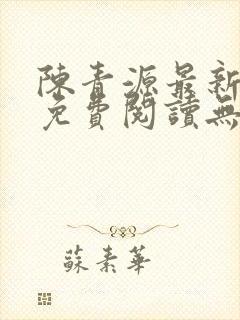 陳青源最新
免費閱讀無
蘇素華